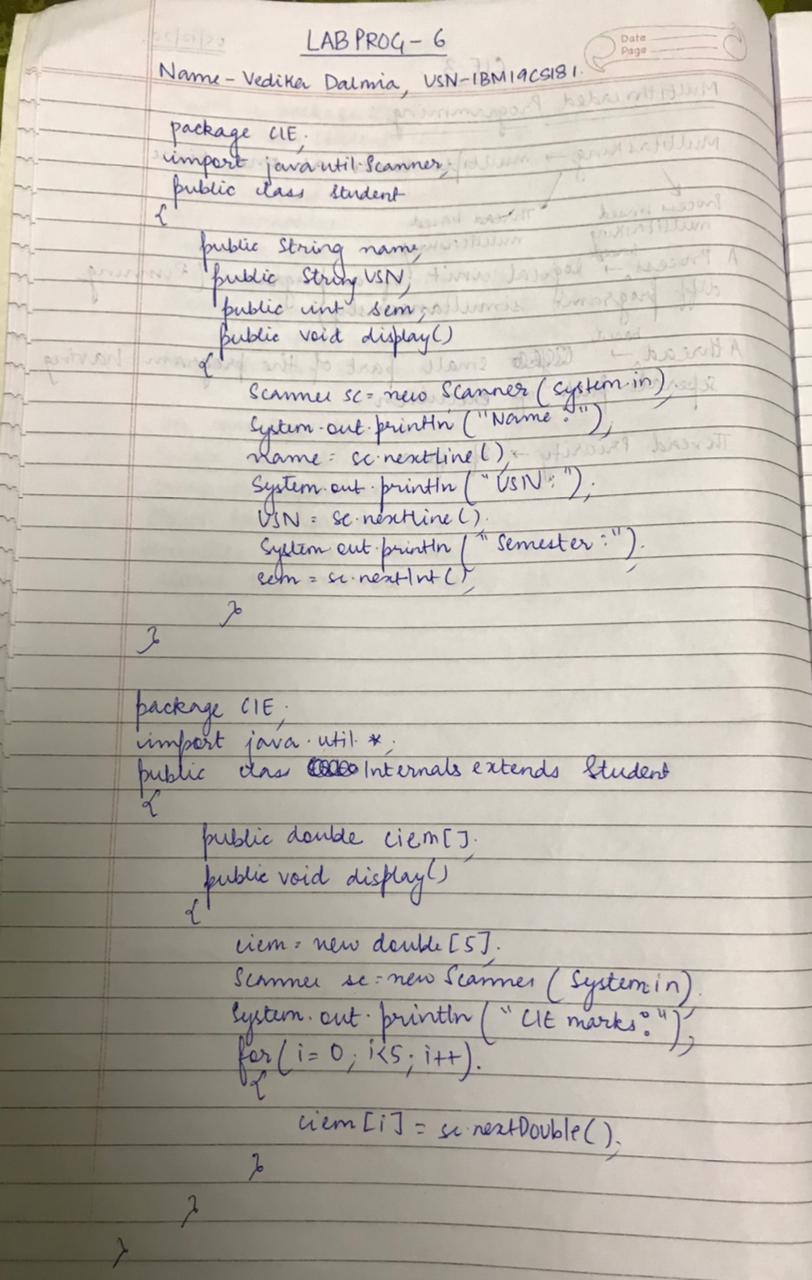 LAB PROG - 6
Date
Page
Name - Vedika Dalmia, USN-1BM19CS181.
package CIE;
import java.util.Scanner;
public class Student
{
public String name;
public String USN;
public int sem;
public void display()
{
Scanner sc = new Scanner (System.in);
System.out.println ("Name:");
name = sc.nextLine();
System.out.println (" USN: ");
USN = sc.nextLine();
System.out.println (" Semester:");
sem = sc.nextInt();
}
}
package CIE;
import java.util.*;
public class Internals extends Student
{
public double ciem[];
public void display()
{
ciem = new double [5];
Scanner sc = new Scanner (System.in);
System.out.println (" CIE marks:");
for (i = 0; i<5; i++).
{
ciem [i] = sc.nextDouble();
}
}
}